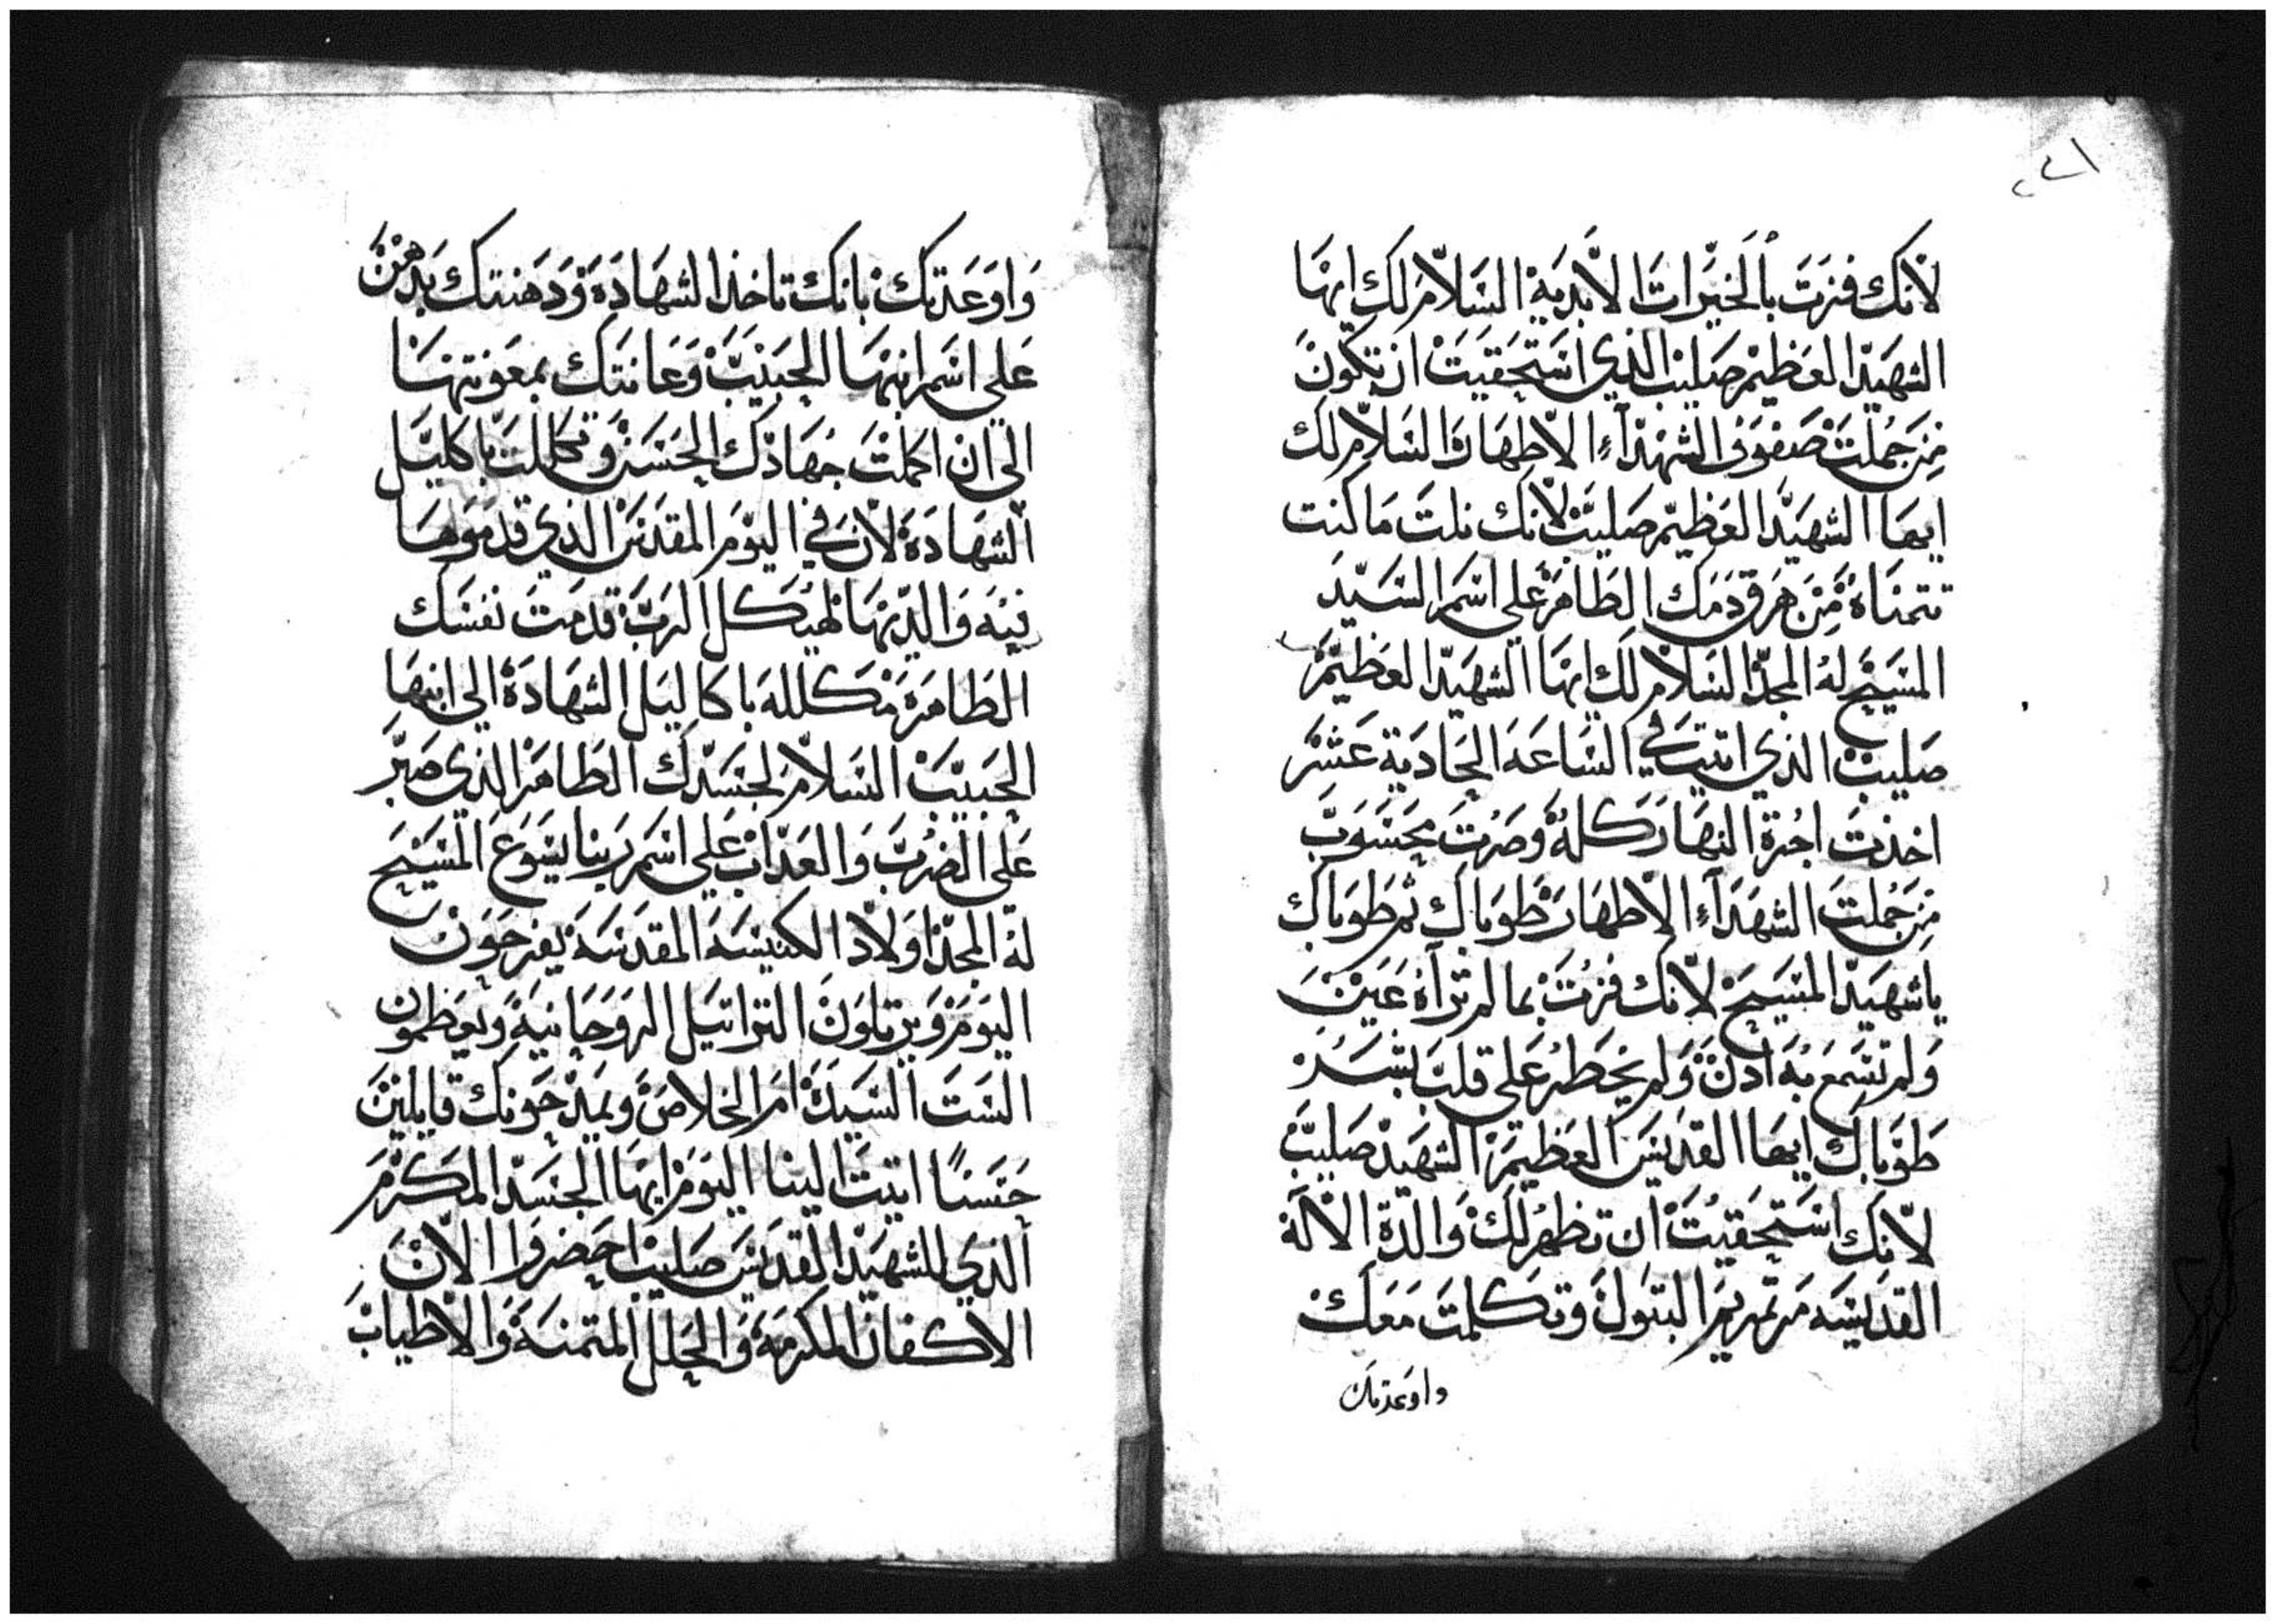 لانك فزت بالخيرات الابدية السلام لك ايها
الشهيد العظيم صليب الذي استحقيت ان تكون
من جملت صفوف الشهدآء الاطهار السلام لك
ايها الشهيد العظيم صليب لانك نلت ما كنت
تتمناه من هرق دمك الطاهر على اسم السيد
المسيح له المجد السلام لك ايها الشهيد العظيم
صليب الذي اتيت في الساعه الحادية عشر
اخذت اجرة النهار كله وصرت محسوب
من جملت الشهدآء الاطهار طوباك ثم طوباك
يا شهيد المسيح لانك فزت بما لم تراه عين
ولم تسمع به ادن ولم يخطر على قلب بشر
طوباك ايها القديس العظيم الشهيد صليب
لانك استحقيت ان تظهر لك والدة الاله
القديسه مرتمريم البتول وتكلمت معك
واوعدتك
واوعدتك بانك تاخذ الشهادة ودهنتك بدهن
على اسم ابنها الحبيب وعانتك بمعونتها
الى ان اكملت جهادك الحسن وتكللت باكليل
الشهادة لان في اليوم المقدس الذي قدموها
فيه والديها لهيكل الرب قدمت نفسك
الطاهرة مكلله باكاليل الشهادة الى ابنها
الحبيب السلام لجسدك الطاهر الذي صبر
على الضرب والعداب على اسم ربنا يسوع المسيح
له المجد اولاد الكنيسه المقدسه يفرحون
اليوم ويرتلون التراتيل الروحانية ويعظمون
الست السيدة ام الخلاص ويمدحونك قايلين
حسنا اتيت الينا اليوم ايها الجسد المكرم
الذي للشهيد القديس صليب احضروا الان
الاكفان المكرمة والحلل المتمنة والاطياب